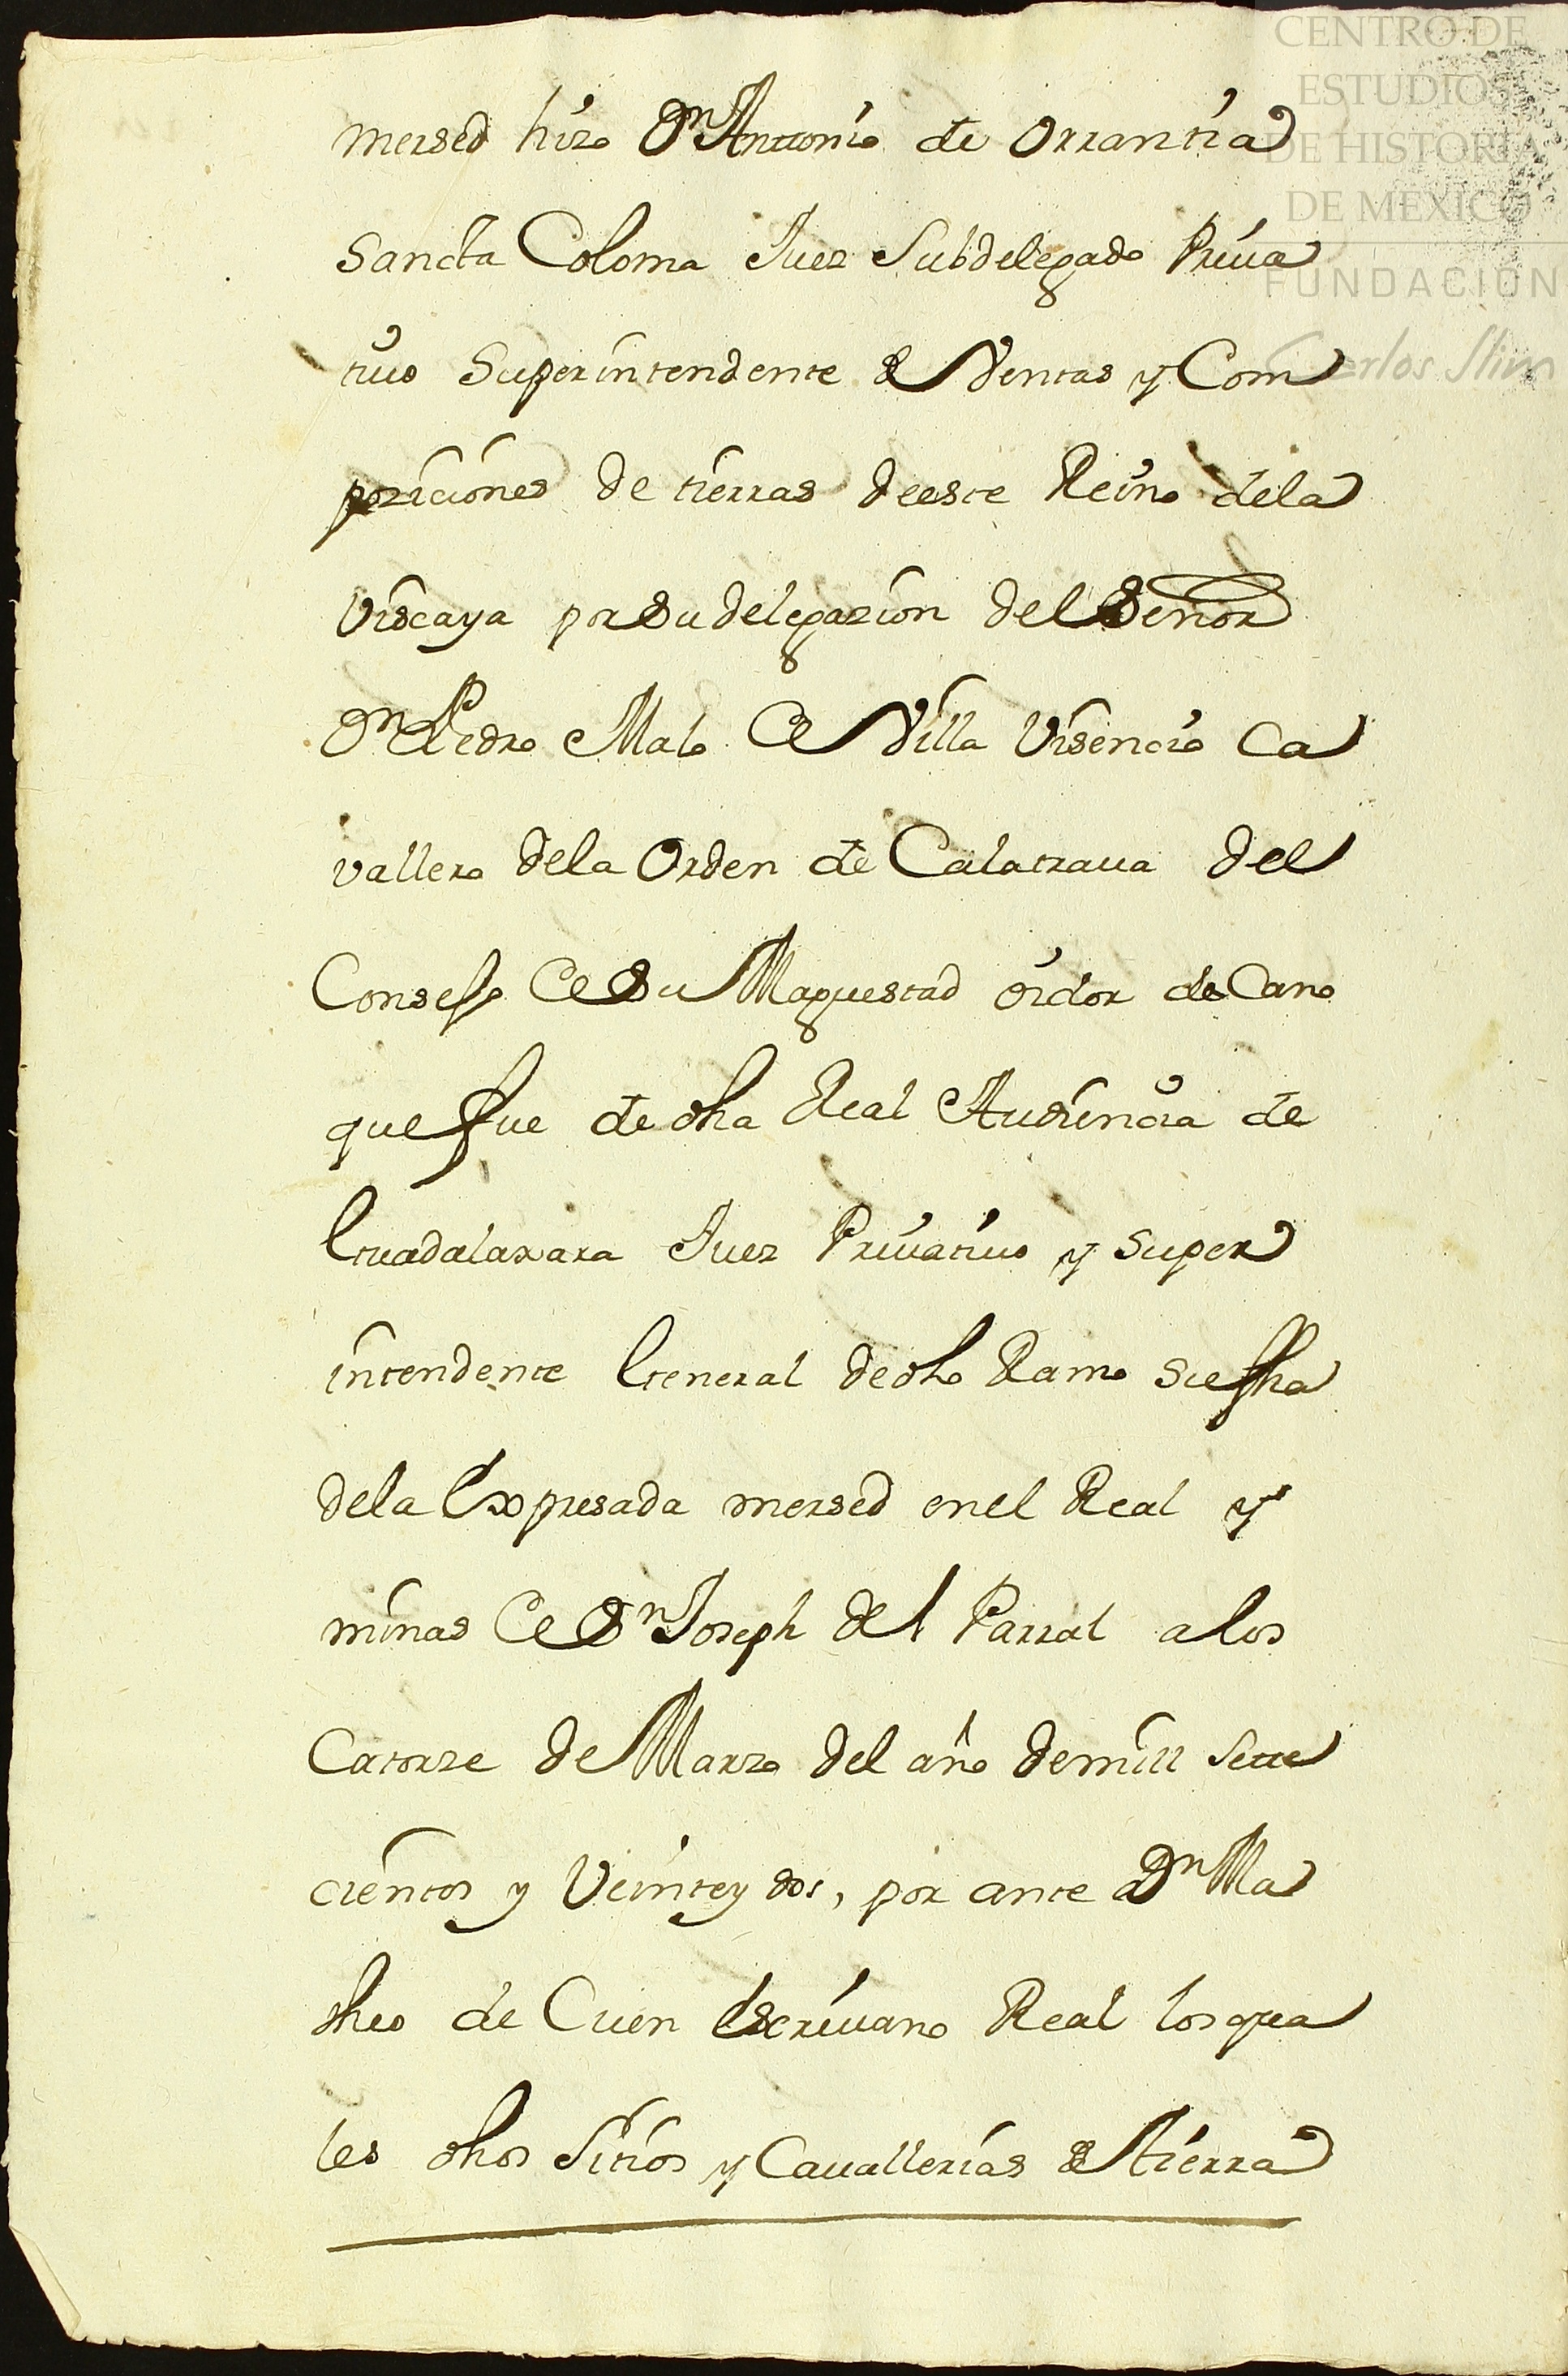 CENTRO DE
ESTUDIOS
DE HISTORIA
DE MÉXICO
FUNDACIÓN
Carlos Slim
mersed hizo Dn Anttonio de Orrantia
Sancta Coloma Juez Subdelegado Priva
tiuo Superintendente de Ventas y Com
poziciones de tierras deeste Reino dela
Viscaya por Su delegazion del Señor
Dn Pedro Malo de Villa Visencio Ca
vallero dela Orden de Calatraua del
Consejo de Su Maguestad oidor de Cano
que fue de dha Real Audiencia de
Guadalaxara Juez Priuatiuo y Super
intendente General de dho Ramo su fha
dela Expresada mersed en el Real y
minas de Sn Joseph del Parral a los
Catorze de Marzo del año de mill Sette
cientos y Veinte y dos, por ante Dn Ma
theo de Cuen Escriuano Real los qua
les dhos Sitios y Cauallerias de tierra